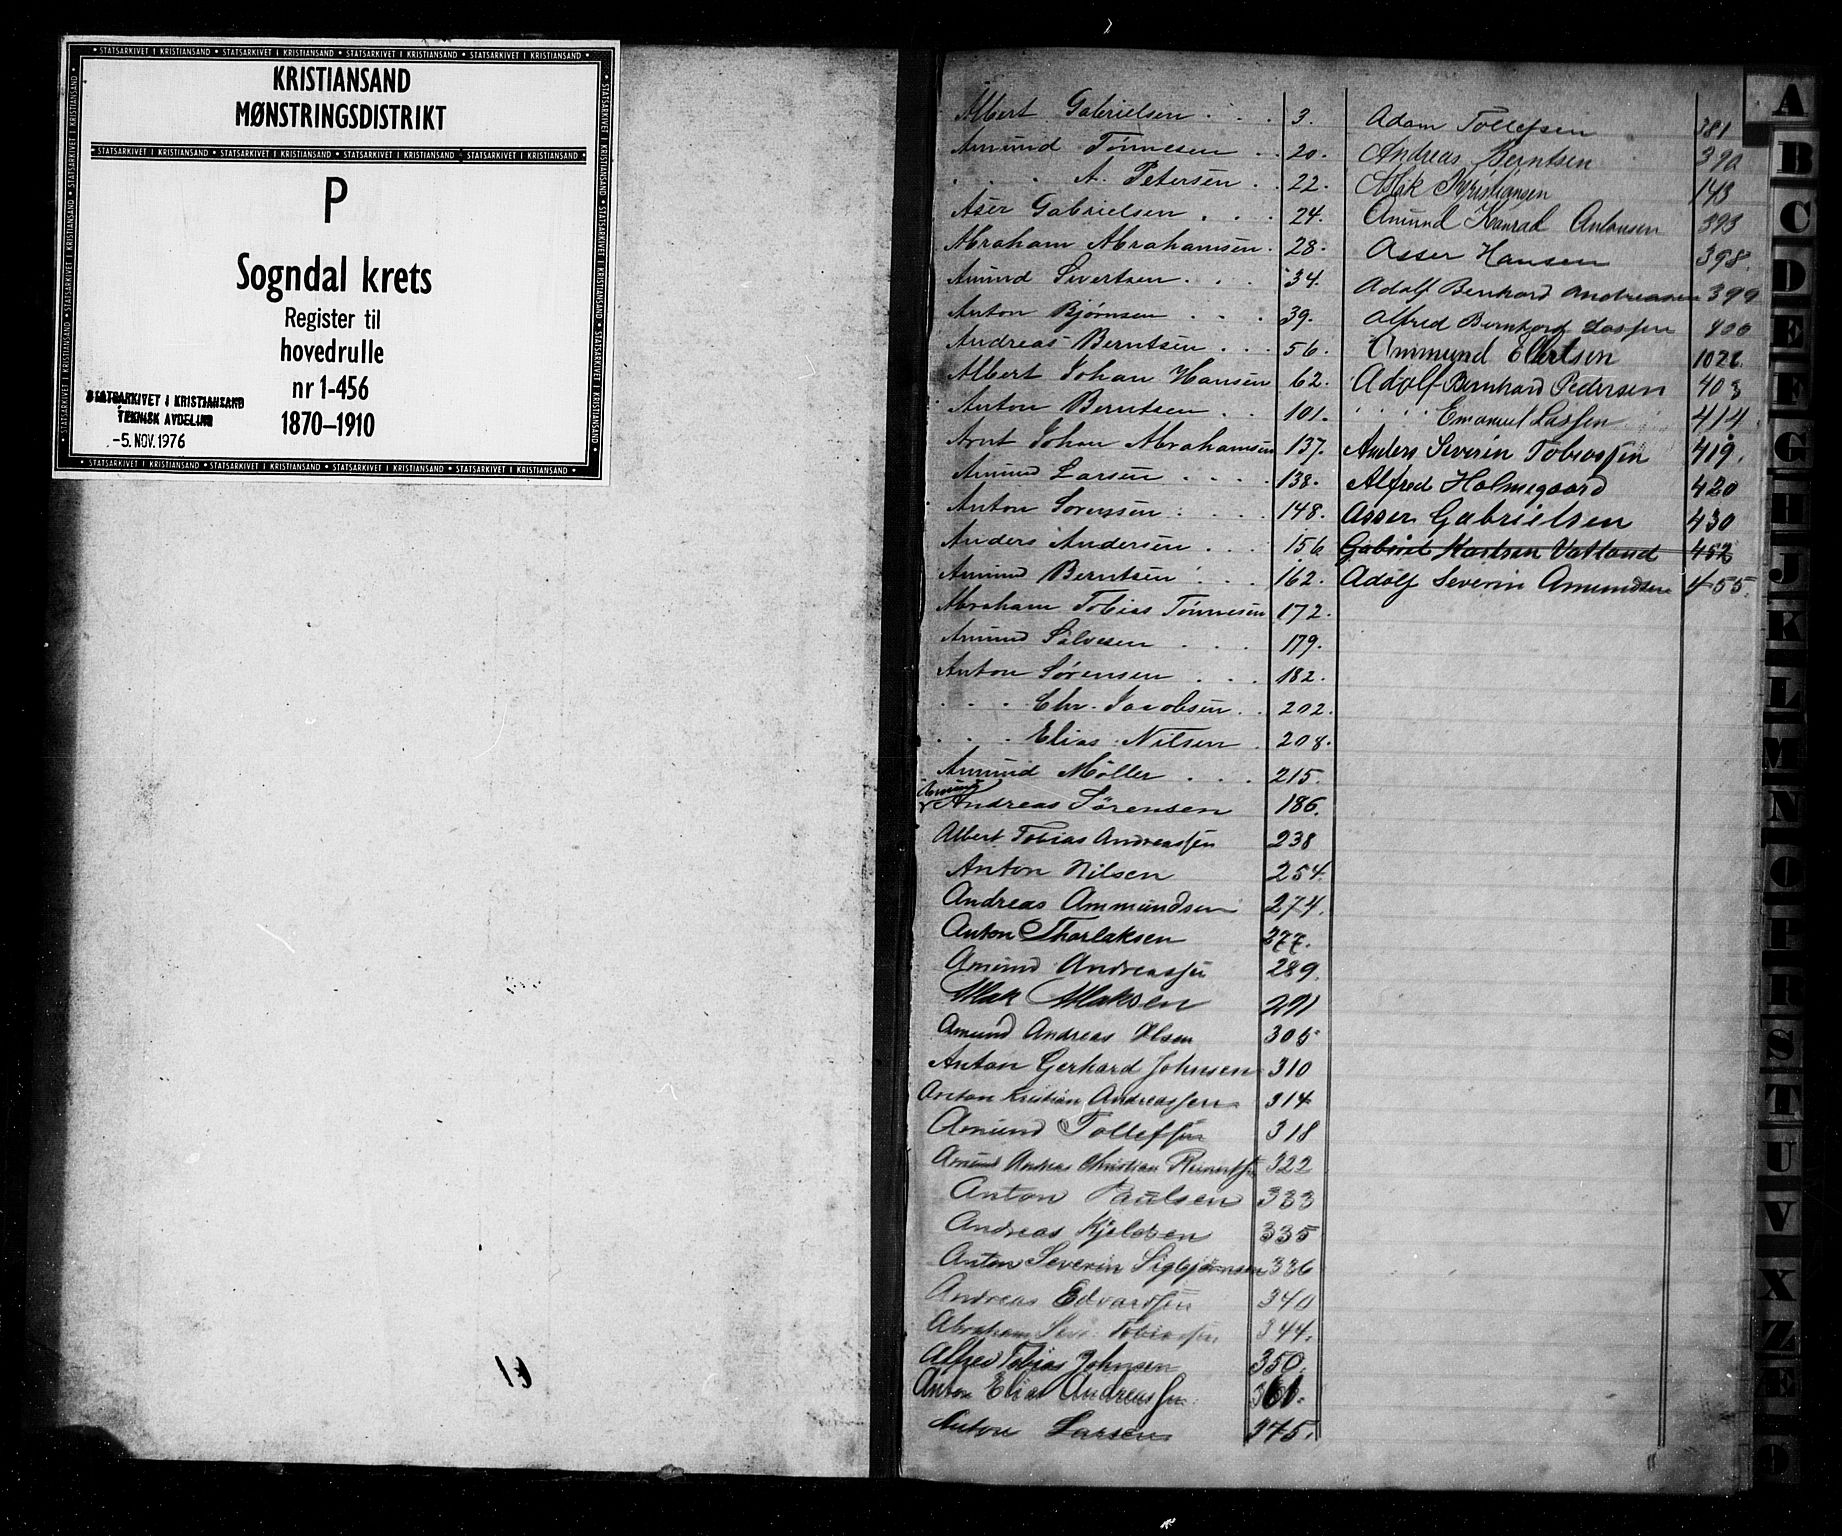 STATSARKIVET I KRISTIANSAND
KRISTIANSAND
MØNSTRINGSDISTRIKT
STATSARKIVET I KRISTIANSAND
P
Sogndal krets
Register til
hovedrulle
nr 1-456
1870-1910
STATSARKIVET I KRISTIANSAND
TEKNISK AVDELING
-5. NOV. 1976
STATSARKIVET I KRISTIANSAND
Albert Gabrielsen . . . 3.
Amund Tønnesen . . 20.
. . . A. Petersen . . 22.
Aser Gabrielsen . . . 24.
Abraham Abrahamsen . 28.
Amund Sivertsen . . . 34.
Anton Bjørnsen . . . 39.
Andreas Berntsen . . . 56.
Albert Johan Hansen 62.
Anton Berntsen . . . 101.
Arnt Johan Abrahamsen 137.
Amund Larsen . . . . 138.
Anton Sørenssen . . . 148.
Anders Andersen . . . 156
Amund Berntsen . . . 162.
Abraham Tobias Tønnesen 172.
Amund Salvesen . . . 179.
Anton Sørensen . . . 182.
. . . Chr. Jacobsen . . 202.
. . . Elias Nilsen . 208.
Amund Møller . . . 215.
Amund
Andreas Sørensen 186.
Albert Tobias Andreassen 238
Anton Nilsen 254.
Andreas Ammundsen 274.
Anton Thorlaksen 277.
Amund Andreassen 289.
Aslak Aslaksen 291
Amund Andreas Olsen 305
Anton Gerhard Johnsen 310
Anton Kristian Andreassen 314
Amund Tollefsen 318
Amund Andreas Christian 322
Anton Paulsen 333
Andreas Kjeldsen 335
Anton Severin Sigbjørnsen 336
Andreas Edvardsen 340
Abraham Sev. Tobiassen 344.
Alfred Tobias Johnsen 350.
Anton Elias Andreassen 361.
Anton Larsen 375.
Adam Tollefsen 381
Andreas Berntsen 390
Aslak Kristiansen 143
Amund Konrad Antonsen 393
Asser Hansen 398.
Adolf Bernhard Andreasen 399
Alfred Bernhard Lassen 400
Ammund Elertsen
Adolf Bernhard Pedersen 403
. . . Emanuel Lassen 414
Anders Severin Tobiassen 419.
Alfred Holmegaard 420
Asser Gabrielsen 430
Gabriel Karlsen Vatland 452
Adolf Severin Amundsen 455.
A
B
C
D
E
F
G
H
J
K
L
M
N
O
P
R
S
T
U
V
X
Z
Æ
Ø